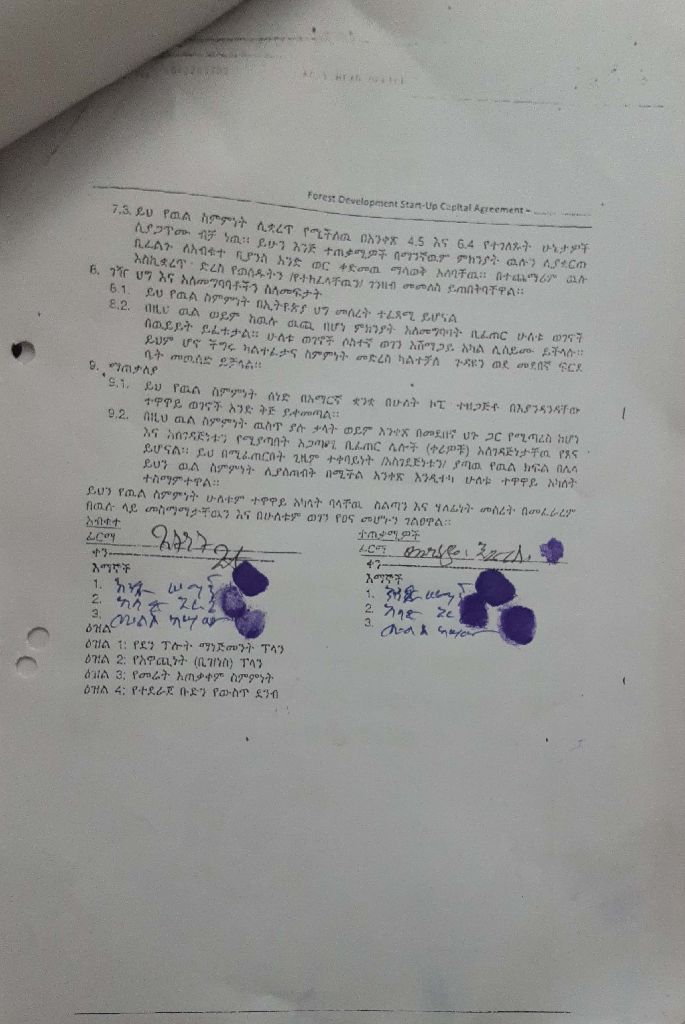 Forest Development Start-Up Capital Agreement –
7.3. ይህ የዉል ስምምነት ሊቋረጥ የሚችለዉ በአንቀጽ 4.5 እና 6.4 የተገለጹት ሁኔታዎች
ሲያጋጥሙ ብቻ ነዉ። ይሁን እንጅ ተጠቃሚዎች በማንኛዉም ምክንያት ዉሉን ሊያቋርጡ
ቢፈልጉ ለአብቁተ ቢያንስ አንድ ወር ቀድመዉ ማሳወቅ አለባቸዉ። በተጨማሪም ዉሉ
እስኪቋረጥ ድረስ የወሰዱትን /የተከፈላቸዉን/ ገንዘብ መመለስ ይጠበቅባቸዋል።
8. ገዥ ህግ እና አለመግባባቶችን ስለመፍታት
8.1. ይህ የዉል ስምምነት በኢትዮጵያ ህግ መሰረት ተፈጻሚ ይሆናል
8.2. በዚህ ዉል ወይም ከዉሉ ዉጪ በሆነ ምክንያት አለመግባባት ቢፈጠር ሁለቱ ወገኖች
በዉይይት ይፈቱታል። ሁለቱ ወገኖች ሶስተኛ ወገን አሸማጋይ አካል ሊሰይሙ ይችላሉ።
ይህም ሆኖ ችግሩ ካልተፈታና ስምምነት መድረስ ካልተቻለ ጉዳዩን ወደ መደበኛ ፍርድ
ቤት መዉሰድ ይቻላል።
9. ማጠቃለያ
9.1. ይህ የዉል ስምምነት ሰነድ በአማርኛ ቋንቋ በሁለት ኮፒ ተዘጋጅቶ በእያንዳንዳቸው
ተዋዋይ ወገኖች አንድ ቅጅ ይቀመጣል።
9.2. በዚህ ዉል ስምምነት ዉስጥ ያሉ ቃላት ወይም አንቀጽ በመደበኛ ህጉ ጋር የሚጣረስ ከሆነ
እና አስገዳጅነቱን የሚያጣበት አጋጣሚ ቢፈጠር ሌሎች (ቀሪዎቹ) አስገዳጅነታቸዉ የጸና
ይሆናል። ይህ በሚፈጠርበት ጊዜም ተቀባይነት /አስገዳጅነቱን/ ያጣዉ የዉል ክፍል በሌላ
ይህን ዉል ስምምነት ሊያስጠብቅ በሚችል አንቀጽ እንዲተካ ሁለቱ ተዋዋይ አካላት
ተስማምተዋል።
ይህን የዉል ስምምነት ሁለቱም ተዋዋይ አካላት ባላቸዉ ስልጣን እና ሃላፊነት መሰረት በመፈራረም
በዉሉ ላይ መስማማታቸዉን እና በሁለቱም ወገን የፀና መሆኑን ገልፀዋል።
አብቁተ
ፊርማ
ቀን
እማኞች
1.
2.
3.
ተጠቃሚዎች
ፊርማ
ቀን
እማኞች
1.
2.
3.
ዕዝል
ዕዝል 1: የደን ፕሎት ማኔጅመንት ፕላን
ዕዝል 2: የአዋጪነት (ቢዝነስ) ፕላን
ዕዝል 3: የመሬት አጠቃቀም ስምምነት
ዕዝል 4: የተደራጀ ቡድን የውስጥ ደንብ